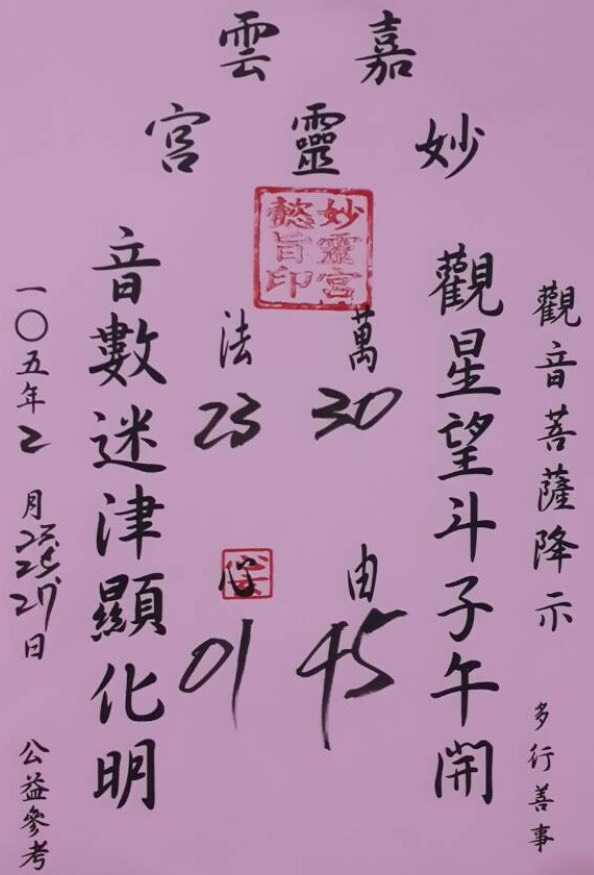 嘉雲
妙靈宮
妙靈宮
懿旨印
觀音菩薩降示 多行善事
觀星望斗子午開
萬 由
30 45
法 心
23 01
音數迷津顯化明
一〇五年2月23.25.27日 公益參考